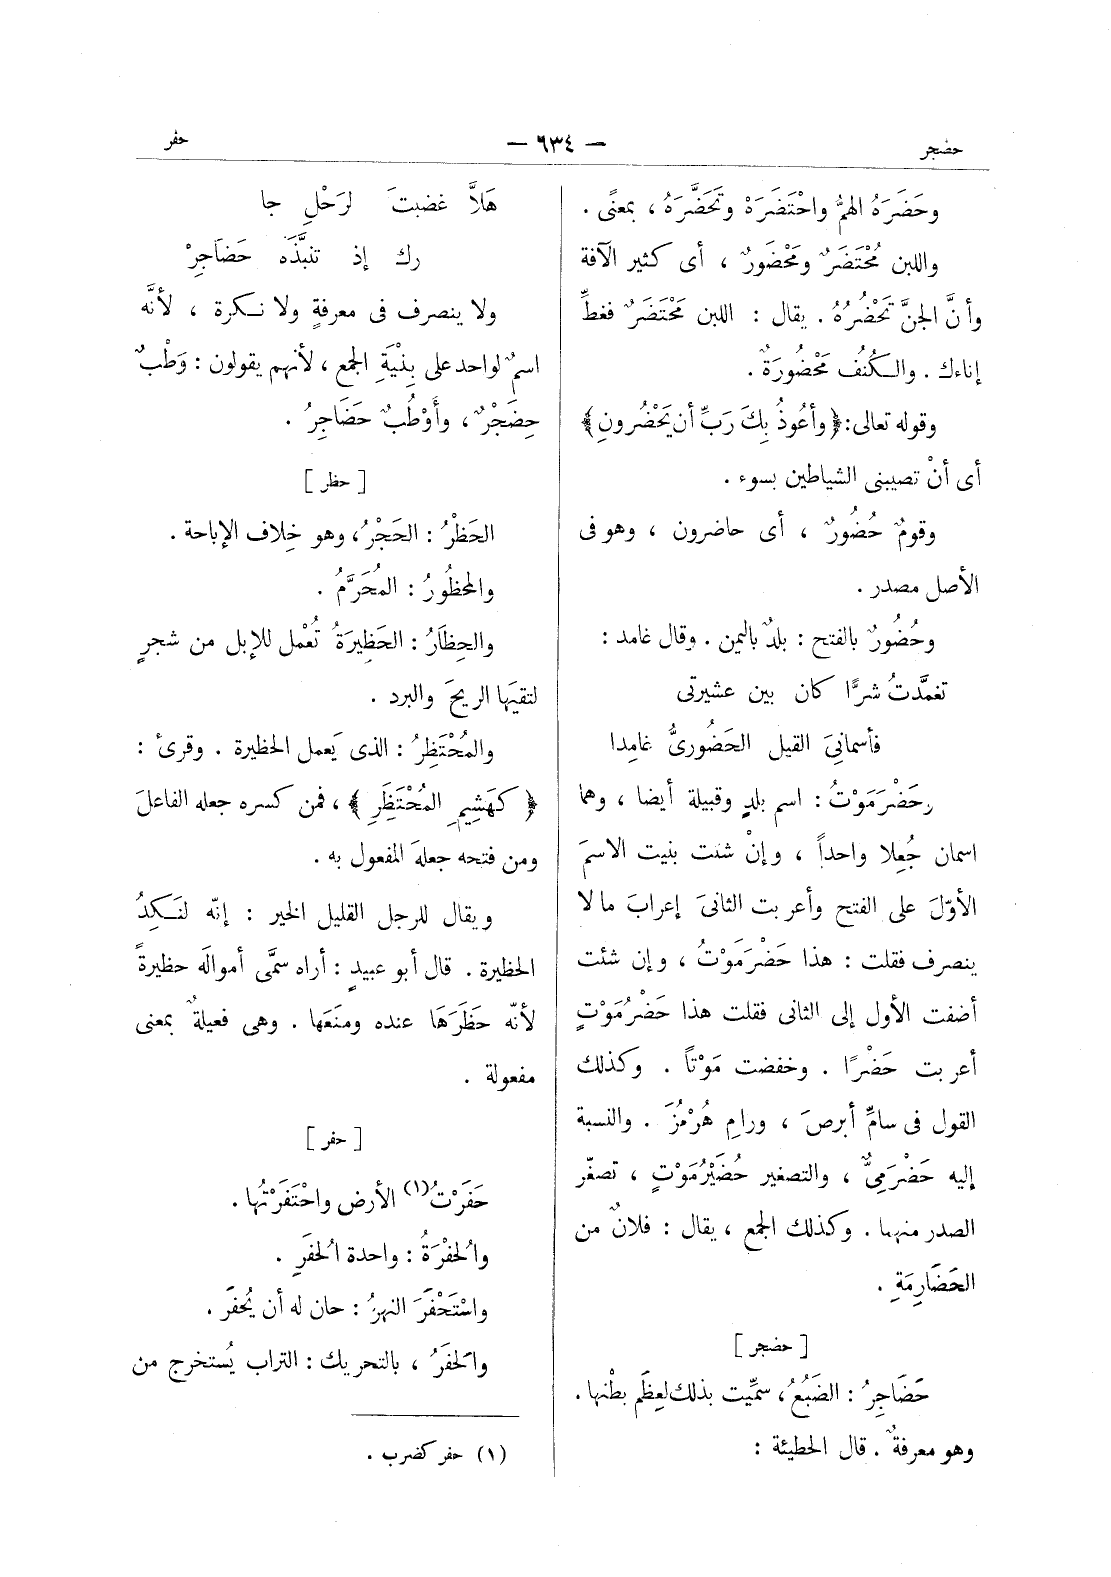 حضجر — ٦٣٤ — حفر
وحَضَرَهُ الهمُّ واحْتَضَرَهُ وتَحَضَّرَهُ ، بمعنًى .
واللبن مُحْتَضَرٌ ومَحْضَورٌ ، أى كثير الآفة
وأنَّ الجنَّ تَحْضُرُهُ . يقال : اللبن مَحْتَضَرٌ فغطِّ
إناءك . والكُنُف مَحْضُورَةٌ .
وقوله تعالى : ﴿ وأعُوذُ بِكَ رَبِّ أن يَحْضُرونِ ﴾
أى أنْ تصيبنى الشياطين بسوء .
وقومٌ حُضُورٌ ، أى حاضرون ، وهو فى
الأصل مصدر .
وحُضُورٌ بالفتح : بلدٌ باليمن . وقال غامد :
تغمَّدتُ شرًّا كان بين عشيرتى
فأسمانِىَ القيل الحَضُورىُّ غامِدا
وحَضْرَمَوْتُ : اسم بلدٍ وقبيلة أيضا ، وهما
اسمان جُعِلا واحداً ، وإنْ شئت بنيت الاسمَ
الأوّلَ على الفتح وأعربت الثانىَ إعرابَ ما لا
ينصرف فقلت : هذا حَضْرَمَوْتُ ، وإن شئت
أضفت الأول إلى الثانى فقلت هذا حَضْرُمَوْتٍ
أعربت حَضْرًا . وخفضت مَوْتاً . وكذلك
القول فى سامِّ أبرصَ ، ورامِ هُرْمُزَ . والنسبة
إليه حَضْرَمِىٌّ ، والتصغير حُضَيْرُمَوْتٍ ، تصغّر
الصدر منهما . وكذلك الجمع ، يقال : فلانٌ من
الحَضَارِمَةِ .
[ حضجر ]
حَضَاجِرُ : الضَبُعُ ، سمِّيت بذلك لعِظَم بطْنها .
وهو معرفةٌ . قال الحطيئة :
هَلاَّ غضبتَ لرَحْلِ جا
رك إذ تنبَّذَه حَضاَجِرْ
ولا ينصرف فى معرفةٍ ولا نكرة ، لأنَّه
اسمٌ لواحد على بِنْيَةِ الجمع ، لأنهم يقولون : وَطْبٌ
حِضَجْرٌ ، وأَوْطُبٌ حَضَاجِرُ .
[ حظر ]
الحَظْرُ : الحَجْرُ ، وهو خِلاف الإباحة .
والمحظُورُ : المُحَرَّمُ .
والحِظاَرُ : الحَظِيرَةُ تُعْمل للإبل من شجرٍ
لتقيَها الريحَ والبرد .
والمُحْتَظِرُ : الذى يَعمل الحظيرة . وقرئ :
﴿ كهَشِيمِ المُحْتَظَرِ ﴾ ، فمن كسره جعله الفاعلَ
ومن فتحه جعلهَ المفعول به .
ويقال للرجل القليل الخير : إنّه لنَكِدُ
الحظيرة . قال أبو عبيدٍ : أراه سمَّى أموالَه حظيرةً
لأنّه حَظَرَهَا عنده ومنَعَها . وهى فعيلةٌ بمعنى
مفعولة .
[ حفر ]
حَفَرْتُ (١) الأرض واحْتَفَرْتُها .
والحُفْرَةُ : واحدة الحُفَرِ .
واسْتَحْفَرَ النهرُ : حان له أن يُحفَر .
والحَفَرُ ، بالتحريك : التراب يُستخرج من
(١) حفر كضرب .